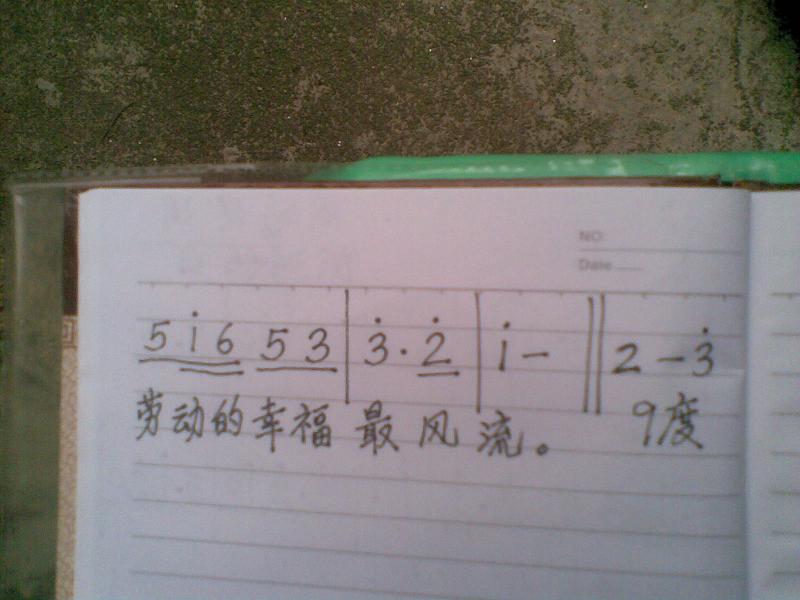 NO:
Date
5 i̇ 6 5 3 | 3̇ · 2̇ | i̇ - || 2 - 3̇
劳动的幸福 最 风 流。 9度